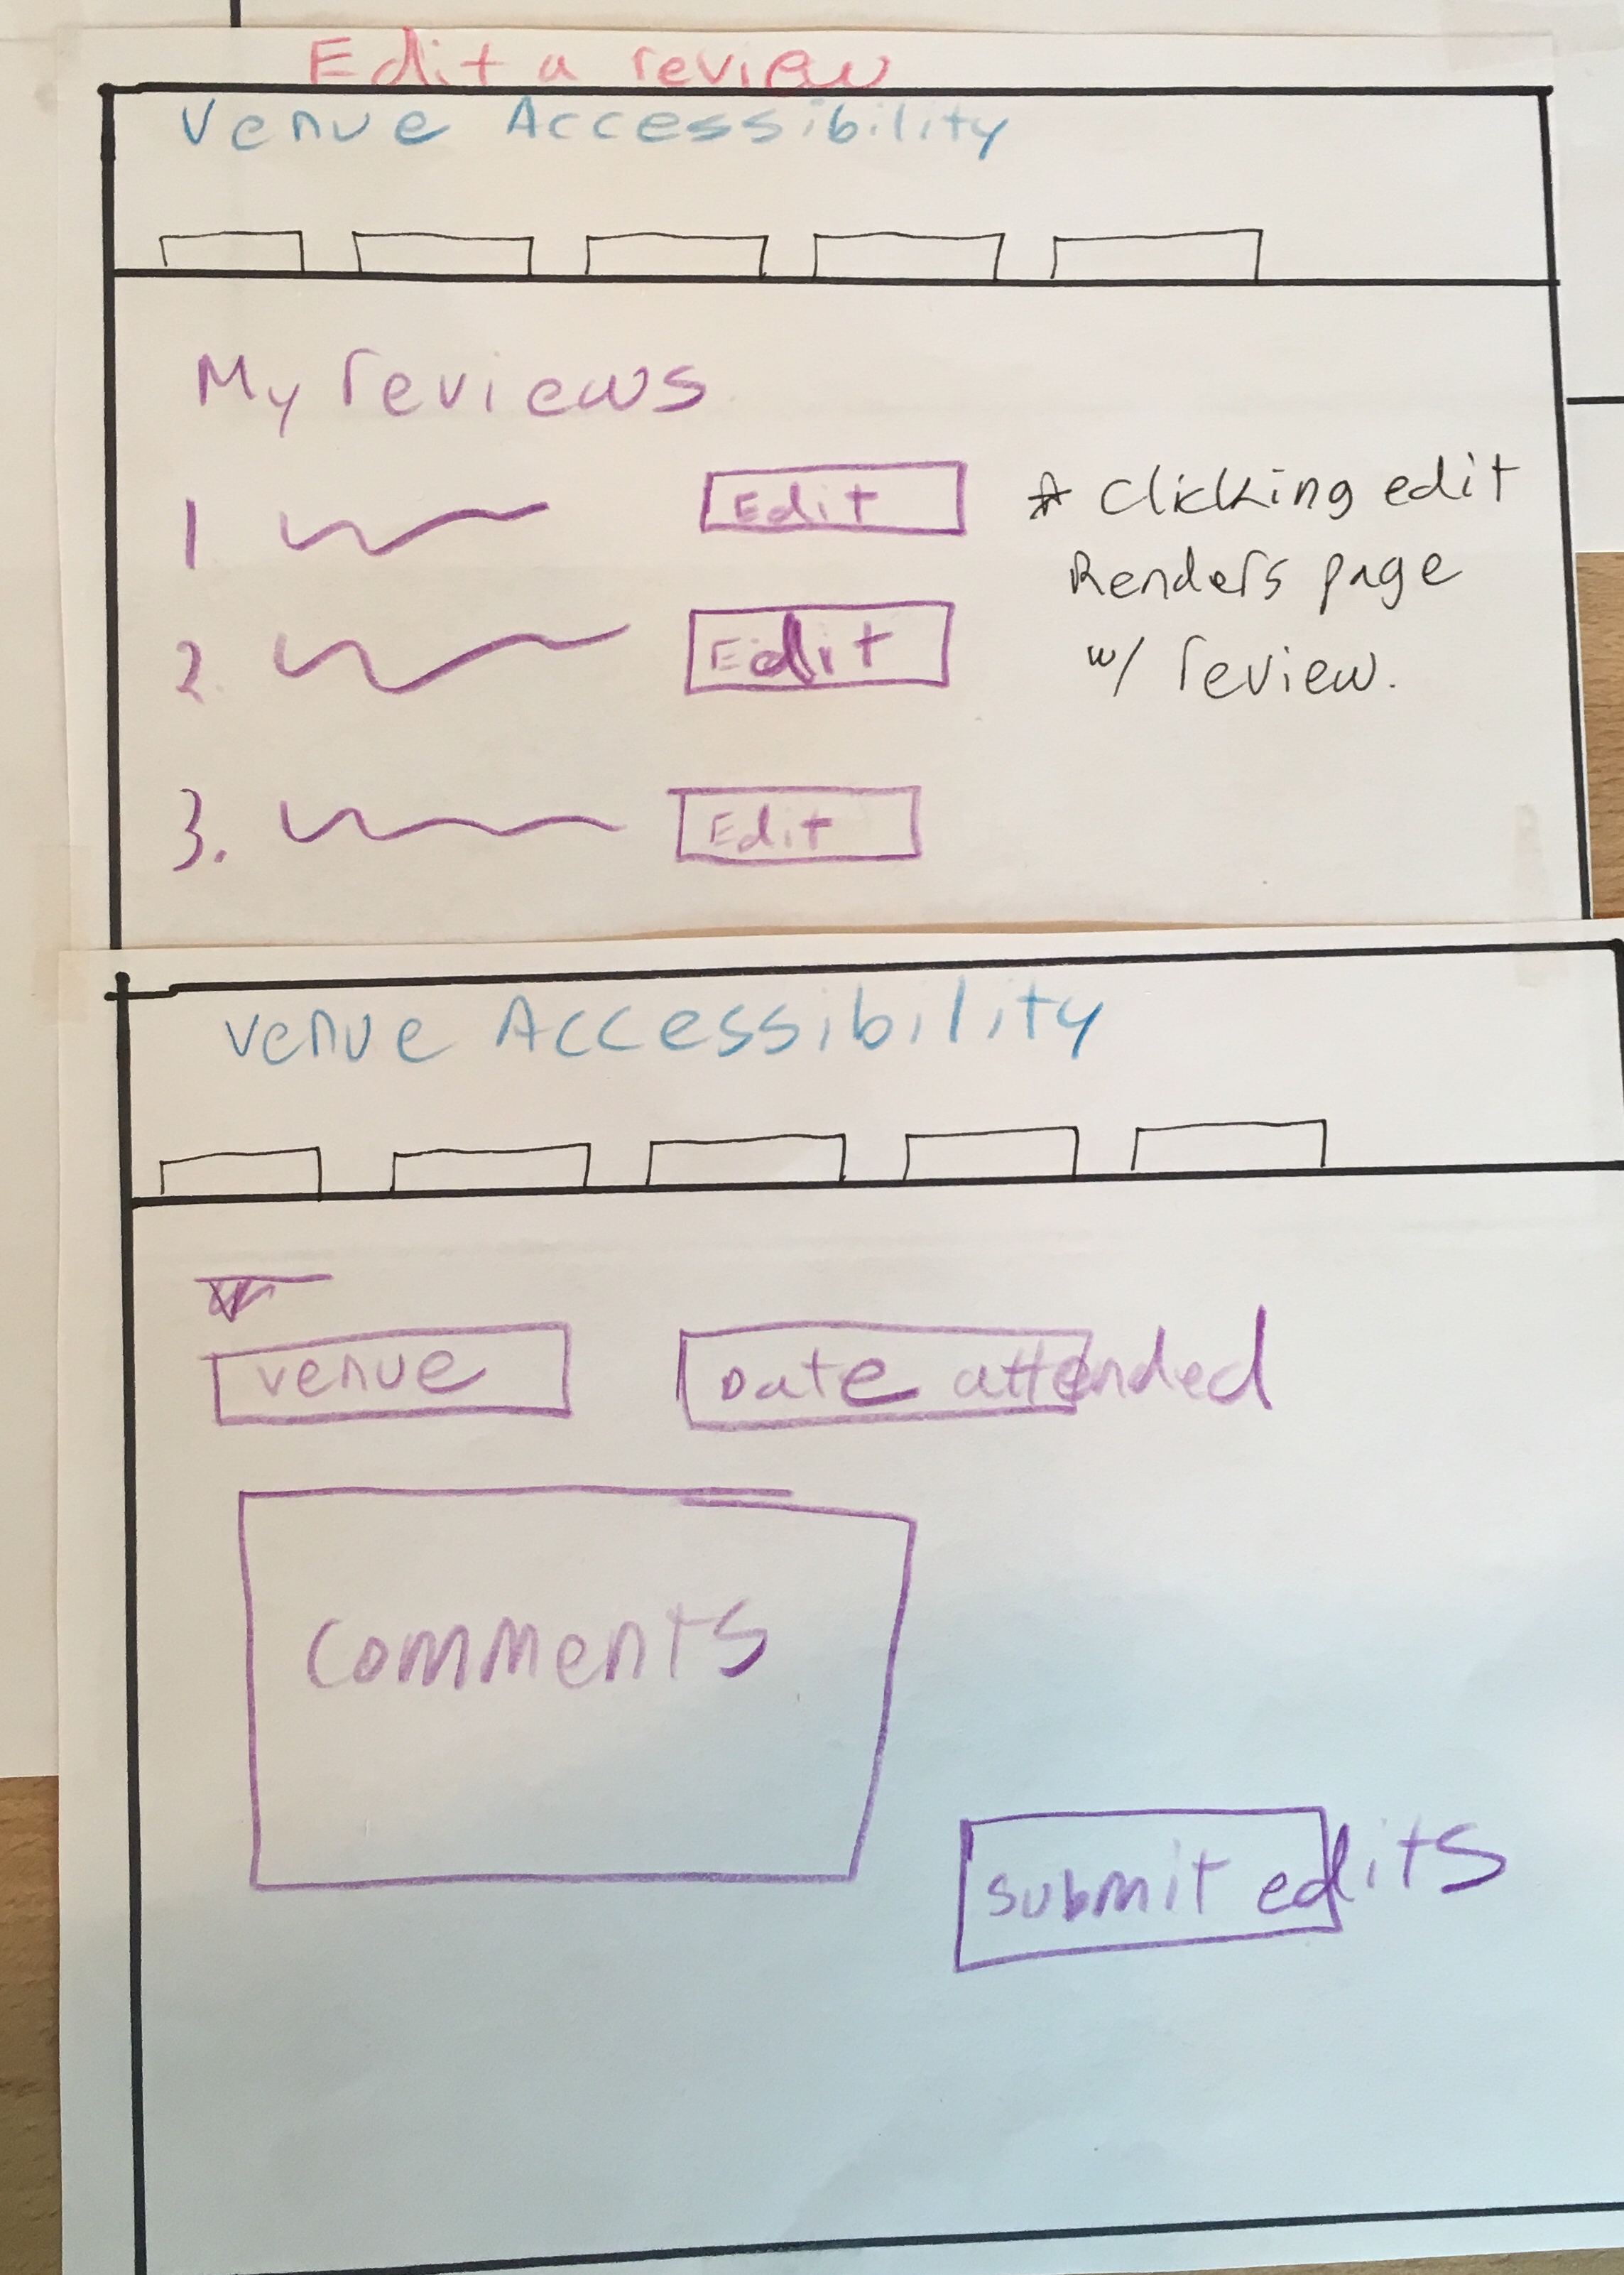 Edit a review
Venue Accessibility
My reviews
1 Edit
2. Edit
3. Edit
* Clicking edit
Renders page
w/ review.
Venue Accessibility
venue
Date attended
Comments
submit edits